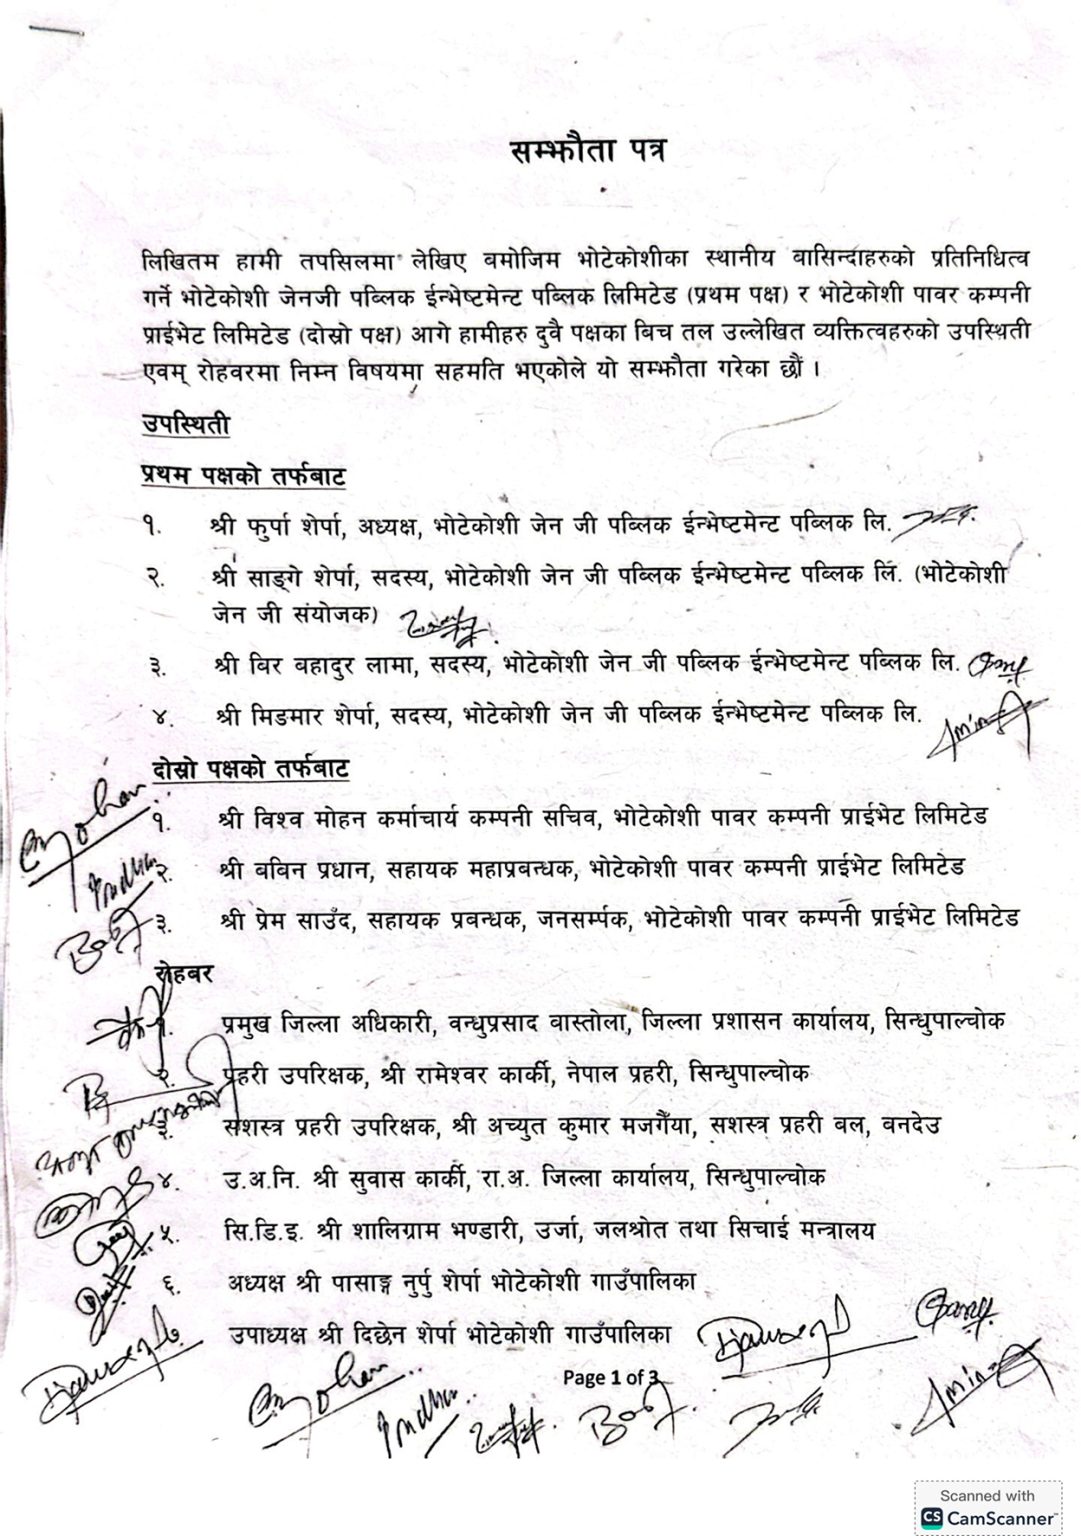 सम्झौता पत्र
लिखितम हामी तपसिलमा लेखिए बमोजिम भोटेकोशीका स्थानीय बासिन्दाहरुको प्रतिनिधित्व
गर्ने भोटेकोशी जेनजी पब्लिक ईन्भेष्टमेन्ट पब्लिक लिमिटेड (प्रथम पक्ष) र भोटेकोशी पावर कम्पनी
प्राईभेट लिमिटेड (दोस्रो पक्ष) आगे हामीहरु दुवै पक्षका बिच तल उल्लेखित व्यक्तित्वहरुको उपस्थिती
एवम् रोहवरमा निम्न विषयमा सहमति भएकोले यो सम्झौता गरेका छौं ।
उपस्थिती
प्रथम पक्षको तर्फबाट
१. श्री फुर्पा शेर्पा, अध्यक्ष, भोटेकोशी जेन जी पब्लिक ईन्भेष्टमेन्ट पब्लिक लि.
२. श्री साङ्गे शेर्पा, सदस्य, भोटेकोशी जेन जी पब्लिक ईन्भेष्टमेन्ट पब्लिक लि. (भोटेकोशी
जेन जी संयोजक)
३. श्री बिर बहादुर लामा, सदस्य, भोटेकोशी जेन जी पब्लिक ईन्भेष्टमेन्ट पब्लिक लि.
४. श्री मिङमार शेर्पा, सदस्य, भोटेकोशी जेन जी पब्लिक ईन्भेष्टमेन्ट पब्लिक लि.
दोस्रो पक्षको तर्फबाट
१. श्री विश्व मोहन कर्माचार्य कम्पनी सचिव, भोटेकोशी पावर कम्पनी प्राईभेट लिमिटेड
२. श्री बबिन प्रधान, सहायक महाप्रबन्धक, भोटेकोशी पावर कम्पनी प्राईभेट लिमिटेड
३. श्री प्रेम साउँद, सहायक प्रबन्धक, जनसर्म्पक, भोटेकोशी पावर कम्पनी प्राईभेट लिमिटेड
रोहबर
१. प्रमुख जिल्ला अधिकारी, वन्धुप्रसाद वास्तोला, जिल्ला प्रशासन कार्यालय, सिन्धुपाल्चोक
२. प्रहरी उपरिक्षक, श्री रामेश्वर कार्की, नेपाल प्रहरी, सिन्धुपाल्चोक
३. सशस्त्र प्रहरी उपरिक्षक, श्री अच्युत कुमार मजगैँया, सशस्त्र प्रहरी वल, वनदेउ
४. उ.अ.नि. श्री सुवास कार्की, रा.अ. जिल्ला कार्यालय, सिन्धुपाल्चोक
५. सि.डि.इ. श्री शालिग्राम भण्डारी, उर्जा, जलश्रोत तथा सिचाई मन्त्रालय
६. अध्यक्ष श्री पासाङ्ग नुर्पु शेर्पा भोटेकोशी गाउँपालिका
उपाध्यक्ष श्री दिछेन शेर्पा भोटेकोशी गाउँपालिका
Page 1 of 3
Scanned with
CS CamScanner